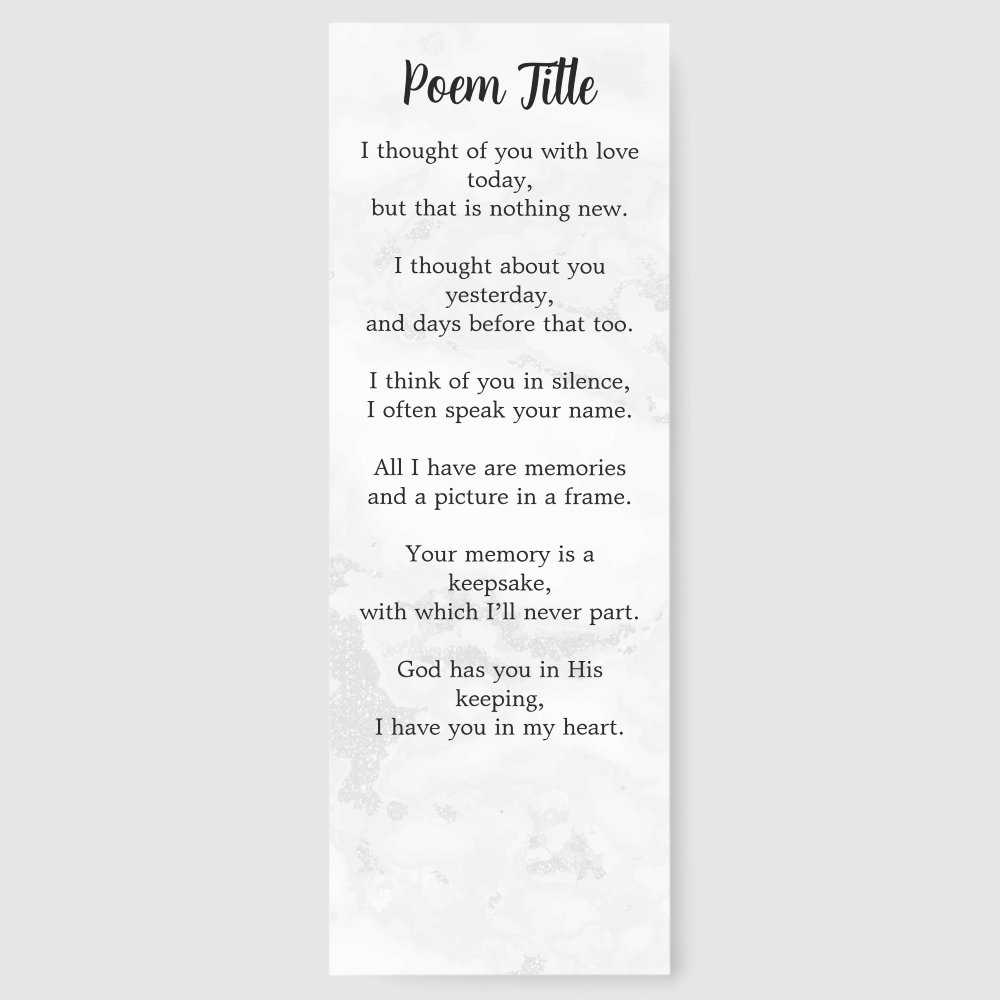 Poem Title
I thought of you with love
today,
but that is nothing new.
I thought about you
yesterday,
and days before that too.
I think of you in silence,
I often speak your name.
All I have are memories
and a picture in a frame.
Your memory is a
keepsake,
with which I’ll never part.
God has you in His
keeping,
I have you in my heart.